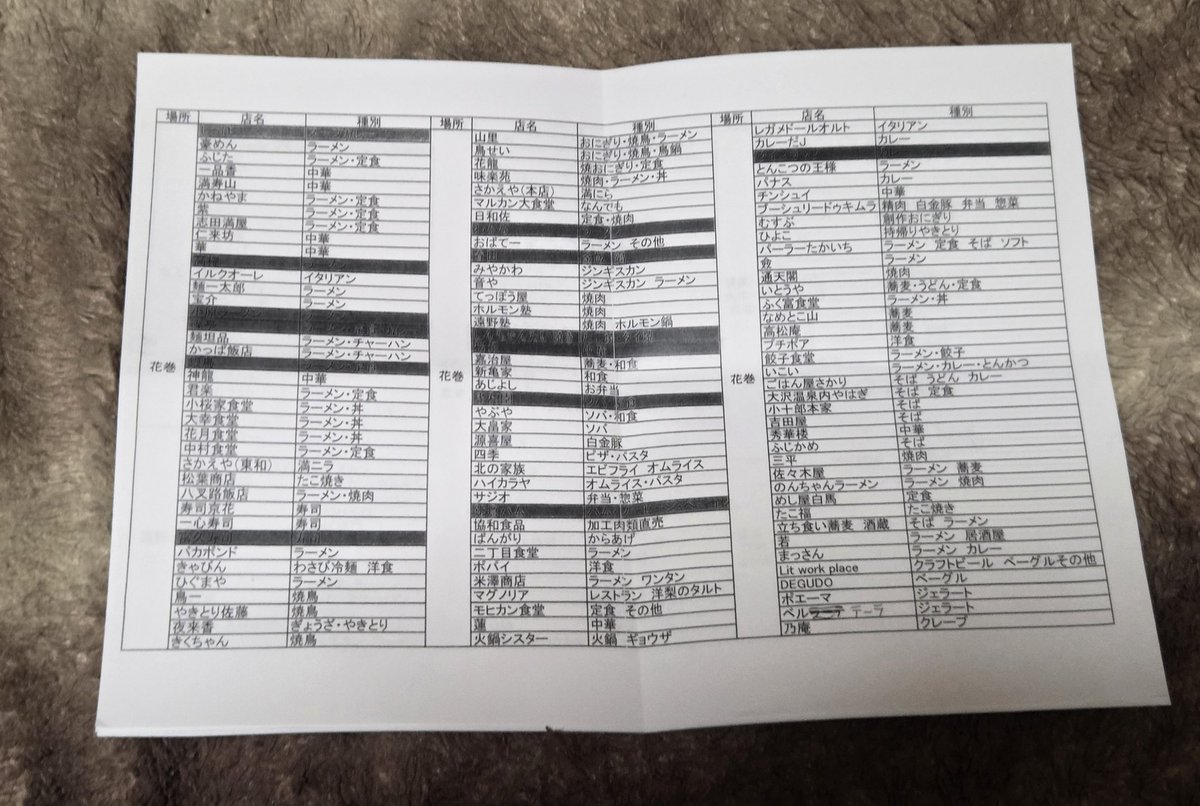 場所 店名 種別
豪めん ラーメン
ふじた ラーメン・定食
一品香 中華
満寿山 中華
かねやま ラーメン・定食
紫 ラーメン・定食
志田満屋 ラーメン・定食
仁来坊 中華
華 中華
イルクオーレ イタリアン
麺一太郎 ラーメン
宝介 ラーメン
麺坦品 ラーメン・チャーハン
かっぱ飯店 ラーメン・チャーハン
花巻
神龍 中華
君栄 ラーメン・定食
小桜家食堂 ラーメン・丼
大幸食堂 ラーメン・丼
花月食堂 ラーメン・丼
中村食堂 ラーメン・定食
さかえや(東和) 満ニラ
松葉商店 たこ焼き
八叉路飯店 ラーメン・焼肉
寿司京花 寿司
一心寿司 寿司
バカボンド ラーメン
きゃびん わさび冷麺 洋食
ひぐまや ラーメン
鳥一 焼鳥
やきとり佐藤 焼鳥
夜来香 ぎょうざ・やきとり
きくちゃん 焼鳥
場所 店名 種別
山里 おにぎり・焼鳥・ラーメン
鳥せい おにぎり・焼鳥・鳥鍋
花龍 焼おにぎり・定食
味楽苑 焼肉・ラーメン・丼
さかえや(本店) 満にら
マルカン大食堂 なんでも
日和佐 定食・焼肉
おばてー ラーメン その他
みやかわ ジンギスカン
音や ジンギスカン ラーメン
てっぽう屋 焼肉
ホルモン塾 焼肉
遠野塾 焼肉 ホルモン鍋
嘉治屋 蕎麦・和食
花巻
新亀家 和食
あじよし お弁当
やぶや ソバ・和食
大畠家 ソバ
源喜屋 白金豚
四季 ピザ・パスタ
北の家族 エビフライ オムライス
ハイカラヤ オムライス・パスタ
サジオ 弁当・惣菜
協和食品 加工肉類直売
ばんがり からあげ
二丁目食堂 ラーメン
ポパイ 洋食
米澤商店 ラーメン ワンタン
マグノリア レストラン 洋梨のタルト
モヒカン食堂 定食 その他
蓮 中華
火鍋シスター 火鍋 ギョウザ
場所 店名 種別
レガメドールオルト イタリアン
カレーだJ カレー
とんこつの王様 ラーメン
バナス カレー
チンシュイ 中華
ブーシェリードゥキムラ 精肉 白金豚 弁当 惣菜
むすぶ 創作おにぎり
ひよこ 持帰りやきとり
パーラーたかいち ラーメン 定食 そば ソフト
ラーメン
通天閣 焼肉
いとうや 蕎麦・うどん・定食
ふく富食堂 ラーメン・丼
なめとこ山 蕎麦
高松庵 蕎麦
プチポア 洋食
餃子食堂 ラーメン・餃子
花巻
いこい ラーメン・カレー・とんかつ
ごはん屋さかり そば うどん カレー
大沢温泉内やはぎ そば 定食
小十郎本家 そば
吉田屋 そば
秀華楼 中華
ふじかめ そば
三平 焼肉
佐々木屋 ラーメン 蕎麦
のんちゃんラーメン ラーメン 焼肉
めし屋白馬 定食
たこ福 たこ焼き
立ち食い蕎麦 酒蔵 そば ラーメン
若 ラーメン 居酒屋
まっさん ラーメン カレー
Lit work place クラフトビール ベーグルその他
DEGUDO ベーグル
ポエーマ ジェラート
ベルラーテ テーラ ジェラート
乃庵 クレープ